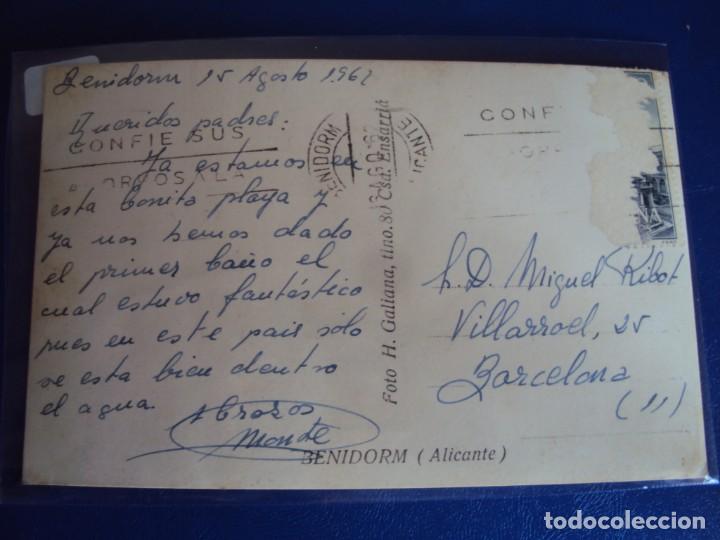 Benidorm 15 Agosto 1962
Queridos padres:
CONFIE SUS
Ya estamos en
esta bonita playa y
ya nos hemos dado
el primer baño el
cual estuvo fantástico
pues en este pais sólo
se esta bien dentro
el agua.
Abrazos
BENIDORM
ALICANTE
CONF
Foto H. Galiana, tfno. 80 Csd. Ensarriá
S. D. Miguel Ribot
Villarroel, 25
Barcelona
(11)
BENIDORM (Alicante)
todocoleccion
todocoleccion.net